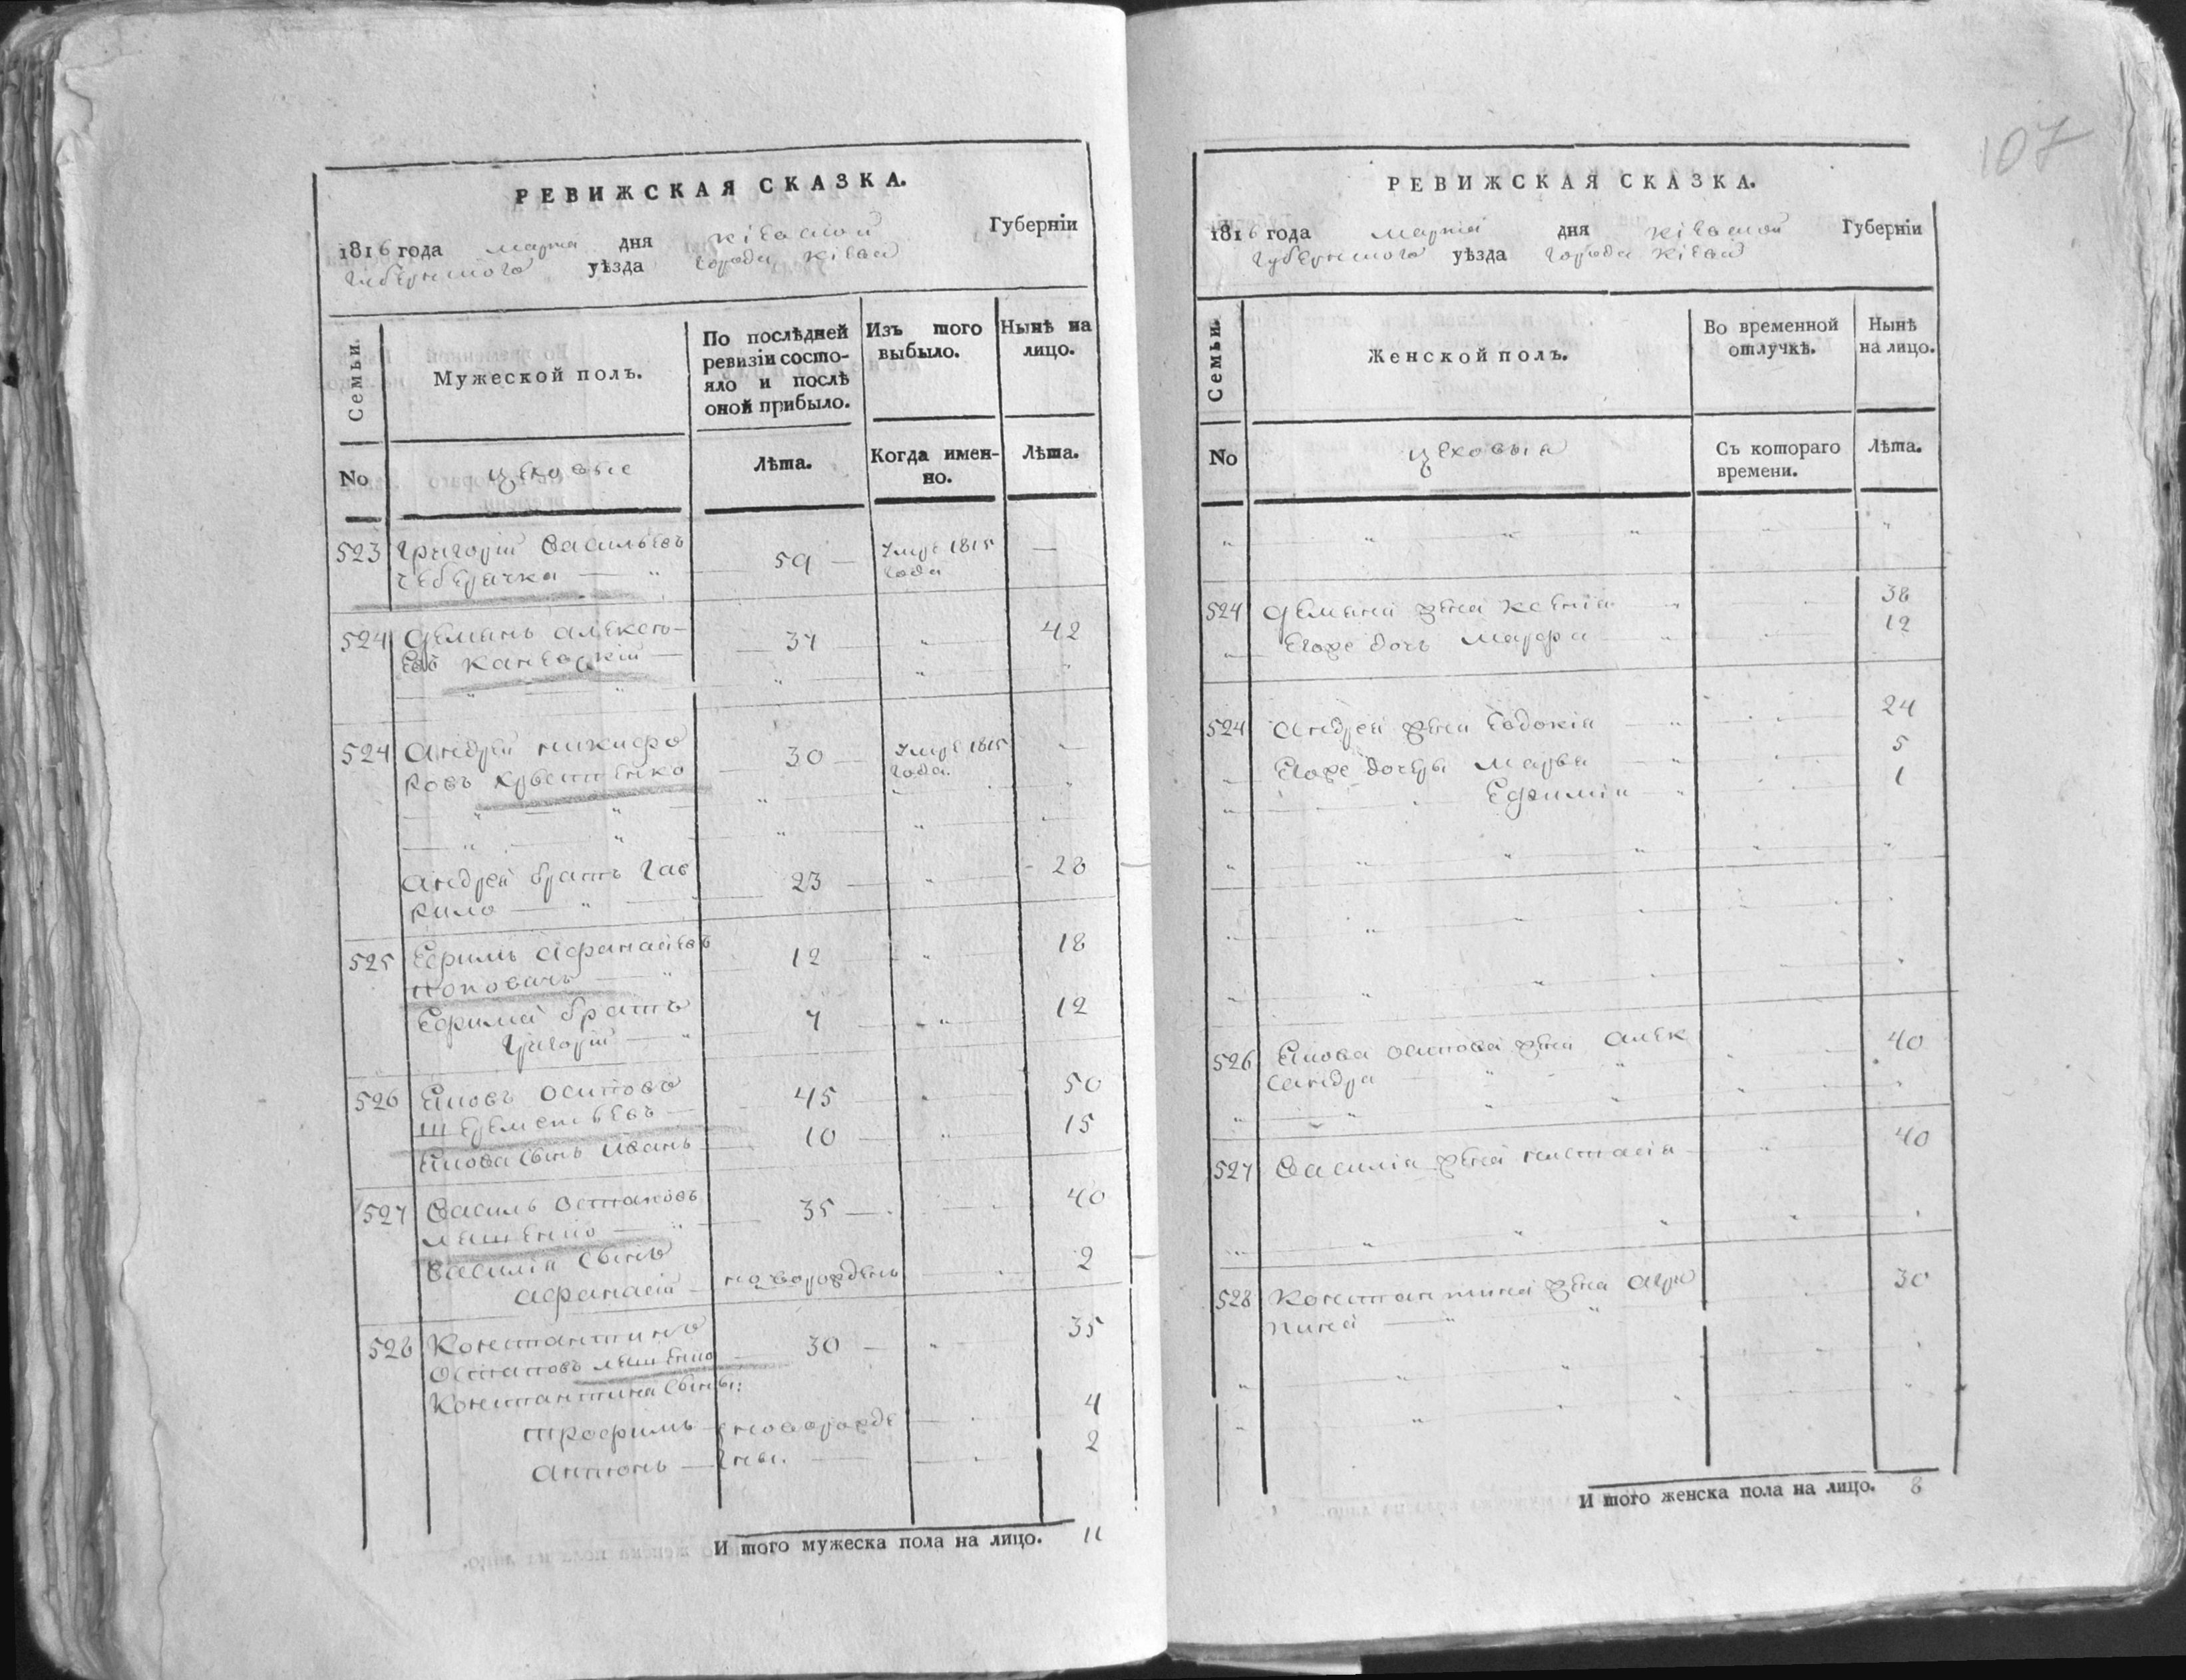 РЕВИЖСКАЯ СКАЗКА.
1816 года марта дня Кіевской Губерніи
Губернского уѣзда города Кіева
Семьи.
Мужеской полъ.
По послѣдней
ревизіи состо-
яло и послѣ
оной прибыло.
Изъ того
выбыло.
Нынѣ на
лицо.
No
цеховые
Лѣта.
Когда имен-
но.
Лѣта.
523 Григорій Васильевъ
Чеберячка — 59 — Умре 1815 года —
524 Демянъ Алексѣ-
евъ Каневскій — 37 42
524 Андрей Никифо
ровъ Крывенко 30 — Умре 1815 года. —
Андрей братъ Гав
рило — 23 — 28
525 Ефимъ Афанасіевъ
Поповичъ — 12 18
Ефима братъ
Григорій — 7 12
526 Яковъ Осиповъ
Шереметьевъ — 45 50
Якова сынъ Иванъ 10 15
527 Василь Остаповъ
Ляшенко — 35 — 40
Василія сынъ
Афанасій — новорожденъ 2
528 Константинъ
Остаповъ Ляшенко 30 — 35
Константина сыны:
Трофимъ — новорожде 4
Антонъ — ны. 2
И того мужеска пола на лицо. 11
107
РЕВИЖСКАЯ СКАЗКА.
1816 года марта дня Кіевской Губерніи
Губернского уѣзда города Кіева
Семьи.
Женской полъ.
Во временной
отлучкѣ.
Нынѣ
на лицо.
No
цеховыя
Съ котораго
времени.
Лѣта.
524 Демяна жена Ксенія 38
Егоже дочь Марфа 12
524 Андрея жена Евдокія 24
Егоже дочеры Марья 5
Ефимія 1
526 Якова Осипова жена Алек
сандра 40
527 Василія жена Настасія 40
528 Константина жена Агри
пина 30
И того женска пола на лицо. 8